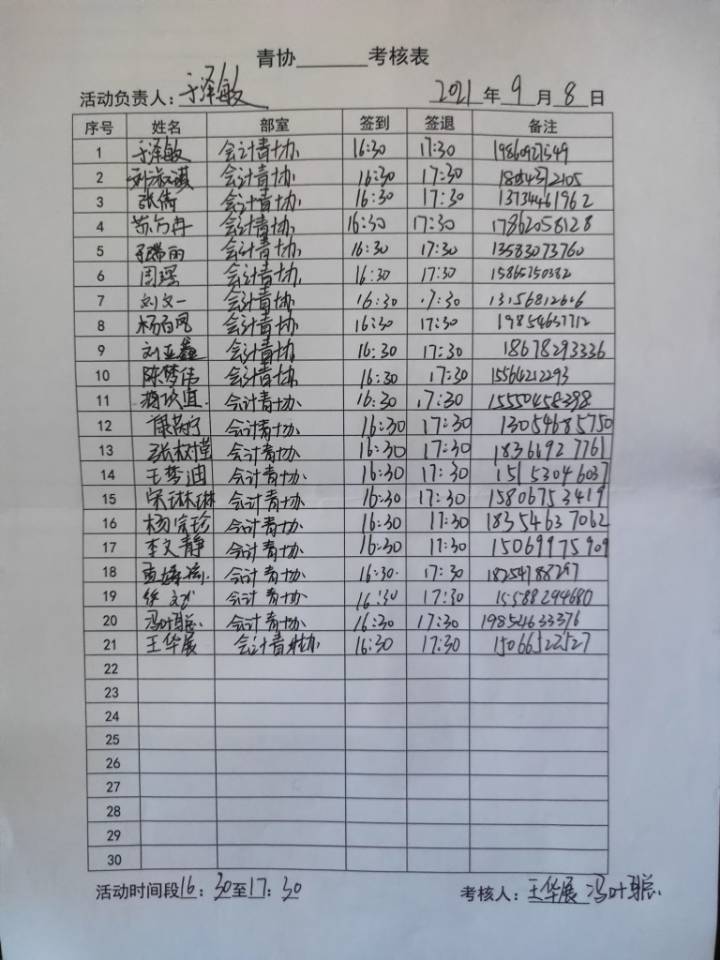 青协______考核表
活动负责人：于泽敏 2021年9月8日
序号 姓名 部室 签到 签退 备注
1 于泽敏 会计青协 16:30 17:30
2 刘淑淇 会计青协 16:30 17:30
3 张倩 会计青协 16:30 17:30 13734461962
4 会计青协 16:30 17:30 17862058128
5 会计青协 16:30 17:30 13583073760
6 周瑾 会计青协 16:30 17:30
7 刘文一 会计青协 16:30 17:30
8 会计青协 16:30 17:30 19854637712
9 刘亚鑫 会计青协 16:30 17:30 18678293336
10 陈梦伟 会计青协 16:30 17:30 15564212293
11 会计青协 16:30 17:30 15550458398
12 会计青协 16:30 17:30 13054685750
13 会计青协 16:30 17:30 18366927761
14 王梦迪 会计青协 16:30 17:30 15153046037
15 宋琳琳 会计青协 16:30 17:30 15806753419
16 会计青协 16:30 17:30 18354637062
17 李文静 会计青协 16:30 17:30 15069975909
18 会计青协 16:30 17:30 18254788297
19 会计青协 16:30 17:30 15588294680
20 冯叶聪 会计青协 16:30 17:30 19854633376
21 王华展 会计青协 16:30 17:30 15066522527
22
23
24
25
26
27
28
29
30
活动时间段16：30至17：30 考核人：王华展 冯叶聪